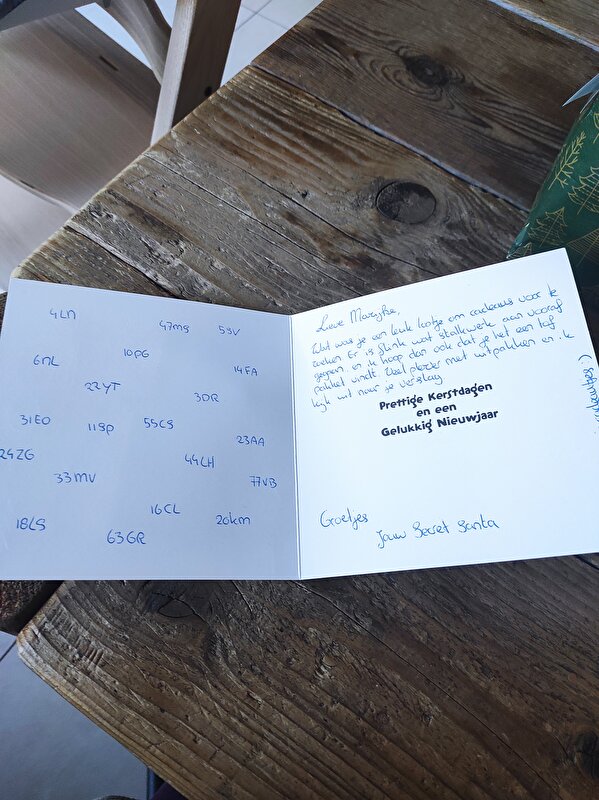 4LN
47mg 53V
6NL 10PG 14FA
22YT 3DR
31EO 118P 55CS 23AA
24ZG 33MV 44LH 77VB
16CL
18LS 63GR 20km
Lieve Marijke,
Wat was je een leuk lootje om cadeaus voor te
zoeken. Er is flink wat stalkwerk aan vooraf
gegaan, en ik hoop dan ook dat je het een tof
pakket vindt. Veel plezier met uitpakken en ik
kijk uit naar je verslag
Prettige Kerstdagen
en een
Gelukkig Nieuwjaar
Groetjes
Jouw Secret Santa